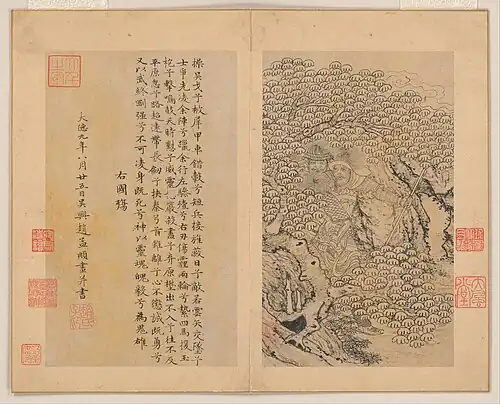 操吳戈兮被犀甲車錯轂兮短兵接旌蔽日兮敵若雲矢交墜兮
士爭先凌余陣兮躐余行左驂殪兮右刃傷霾兩輪兮縶四馬援玉
枹兮擊鳴鼓天時懟兮威靈怒嚴殺盡兮弃原壄出不入兮往不反
平原忽兮路超遠帶長劍兮挾秦弓首雖離兮心不懲誠既勇兮
又以武終剛强兮不可凌身既死兮神以靈魂魄毅兮為鬼雄
右國殤
大德九年八月廿五日吳興趙孟頫畫并書